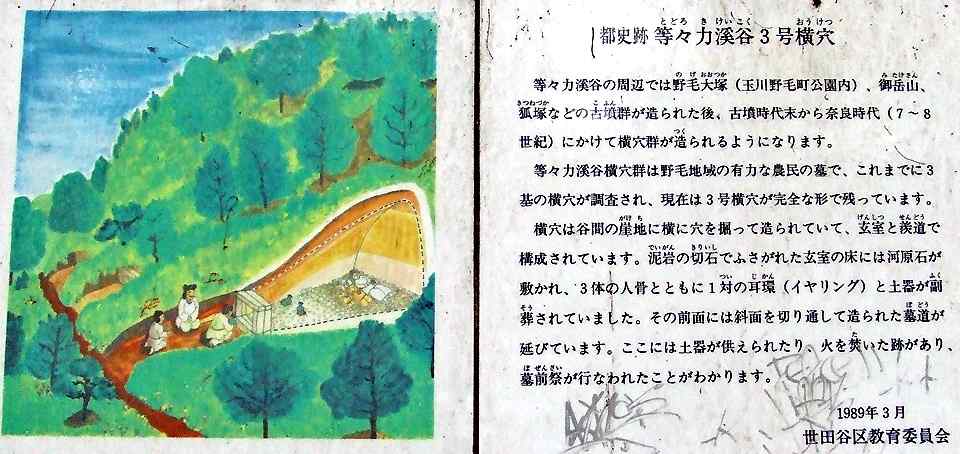 都史跡 等々力溪谷3号横穴
とどろ き けいこく おうけつ
等々力溪谷の周辺では野毛大塚（玉川野毛町公園内）、御岳山、
の げ おおつか み たけさん
狐塚などの古墳群が造られた後、古墳時代末から奈良時代（7～8
きつねづか こ ふん
世紀）にかけて横穴群が造られるようになります。
つく
等々力溪谷横穴群は野毛地域の有力な農民の墓で、これまでに3
基の横穴が調査され、現在は3号横穴が完全な形で残っています。
横穴は谷間の崖地に横に穴を掘って造られていて、玄室と羨道で
がけ ち げんしつ せんどう
構成されています。泥岩の切石でふさがれた玄室の床には河原石が
でいがん きりいし
敷かれ、3体の人骨とともに1対の耳環（イヤリング）と土器が副
つい じ かん ふく
葬されていました。その前面には斜面を切り通して造られた墓道が
そう ぼ どう
延びています。ここには土器が供えられたり、火を焚いた跡があり、
た
墓前祭が行なわれたことがわかります。
ぼ ぜんさい
1989年3月
世田谷区教育委員会